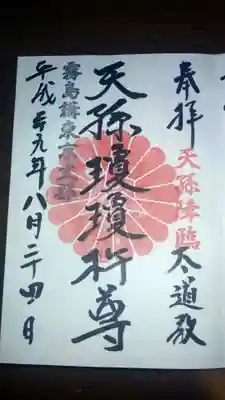 奉拝
天孫降臨
太道教
天孫瓊瓊杵尊
霧島講東京支部
平成廿九年八月二十四日